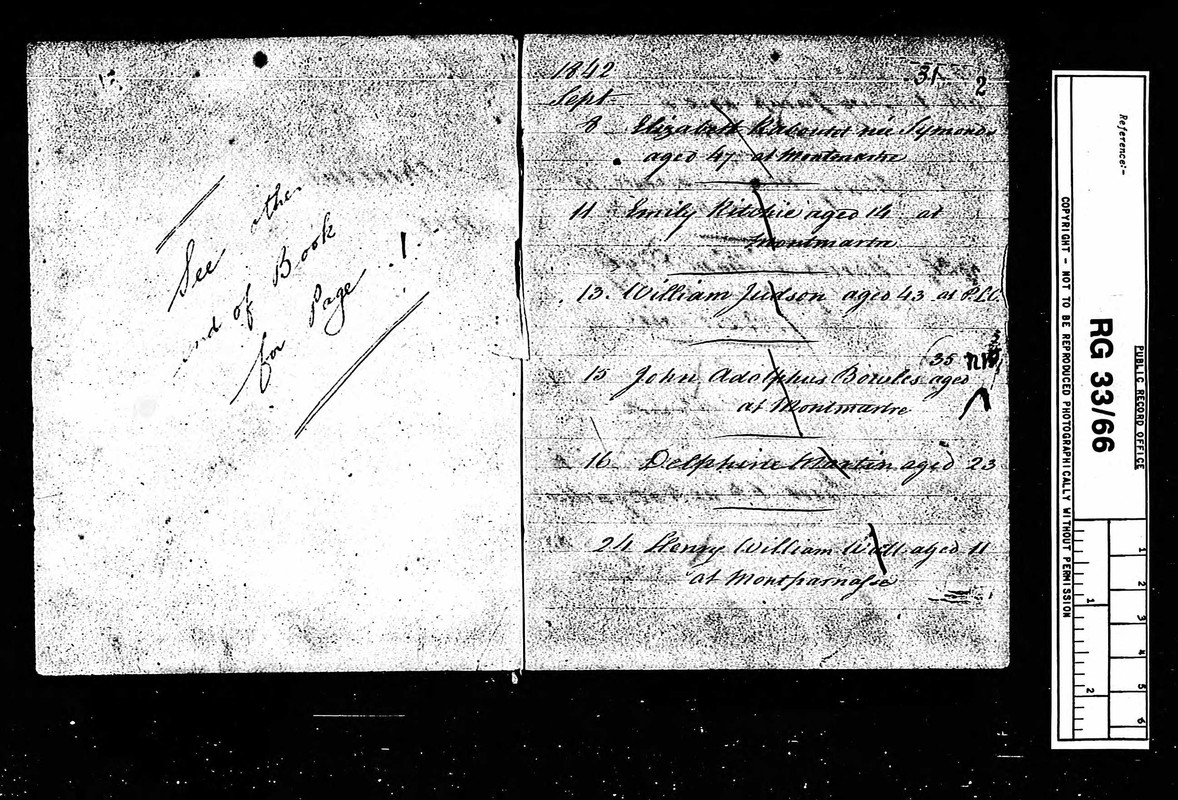 See other
end of Book
for Page 1
1842
31. 2
Sept
8 Elizabeth née Symonds
aged 47 at Montmartre
11 Emily Ritchie aged 14 at
Montmartre
13. William Judson aged 43 at P.L.C.
35
15 John Adolphus Bowles aged
at Montmartre
16 Delphine Martin aged 23
24 Henry William Wall aged 11
at Montparnasse
Reference:-
PUBLIC RECORD OFFICE
RG 33/66
COPYRIGHT - NOT TO BE REPRODUCED PHOTOGRAPHICALLY WITHOUT PERMISSION
1 2 3 4 5 6
1 2